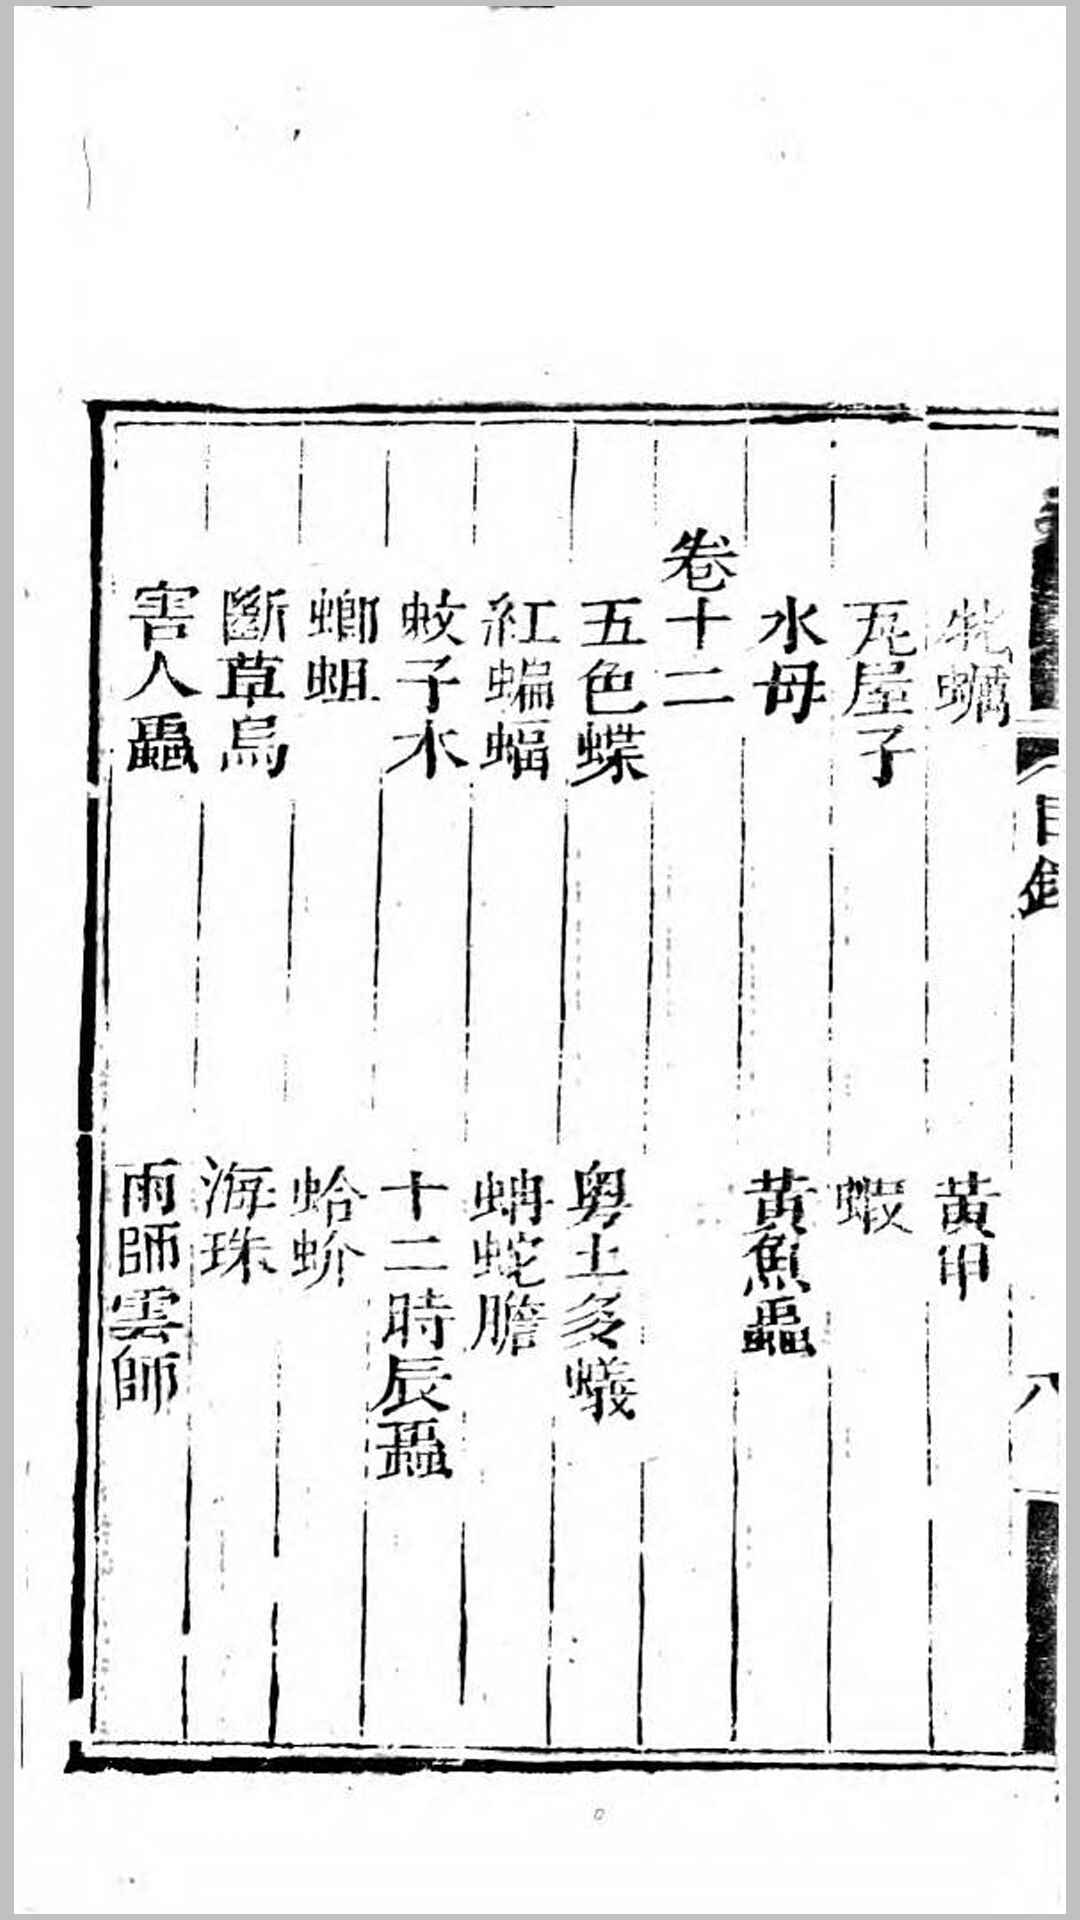 目錄
八
牡蠣
黃甲
瓦屋子
蝦
水母
黃魚蟲
卷十二
五色蝶
粵土多蟻
紅蝙蝠
蚺蛇膽
蚊子木
十二時辰蟲
螂蛆
蛤蚧
斷草烏
海珠
害人蟲
雨師雲師